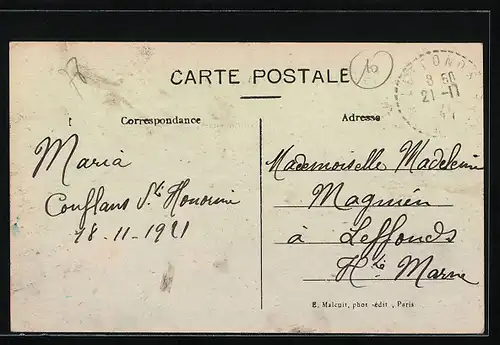 CARTE POSTALE
Correspondance
Adresse
Maria
Conflans Ste Honorine
18-11-1921
Mademoiselle Madeleine
Magnien
à Leffonds
Hte Marne
E. Malcuit, phot-édit, Paris
9 50
21 -11